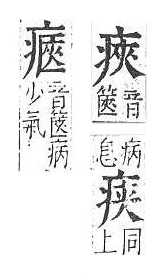 㾑音篋
病息
同上
㾜音篋病
少氣